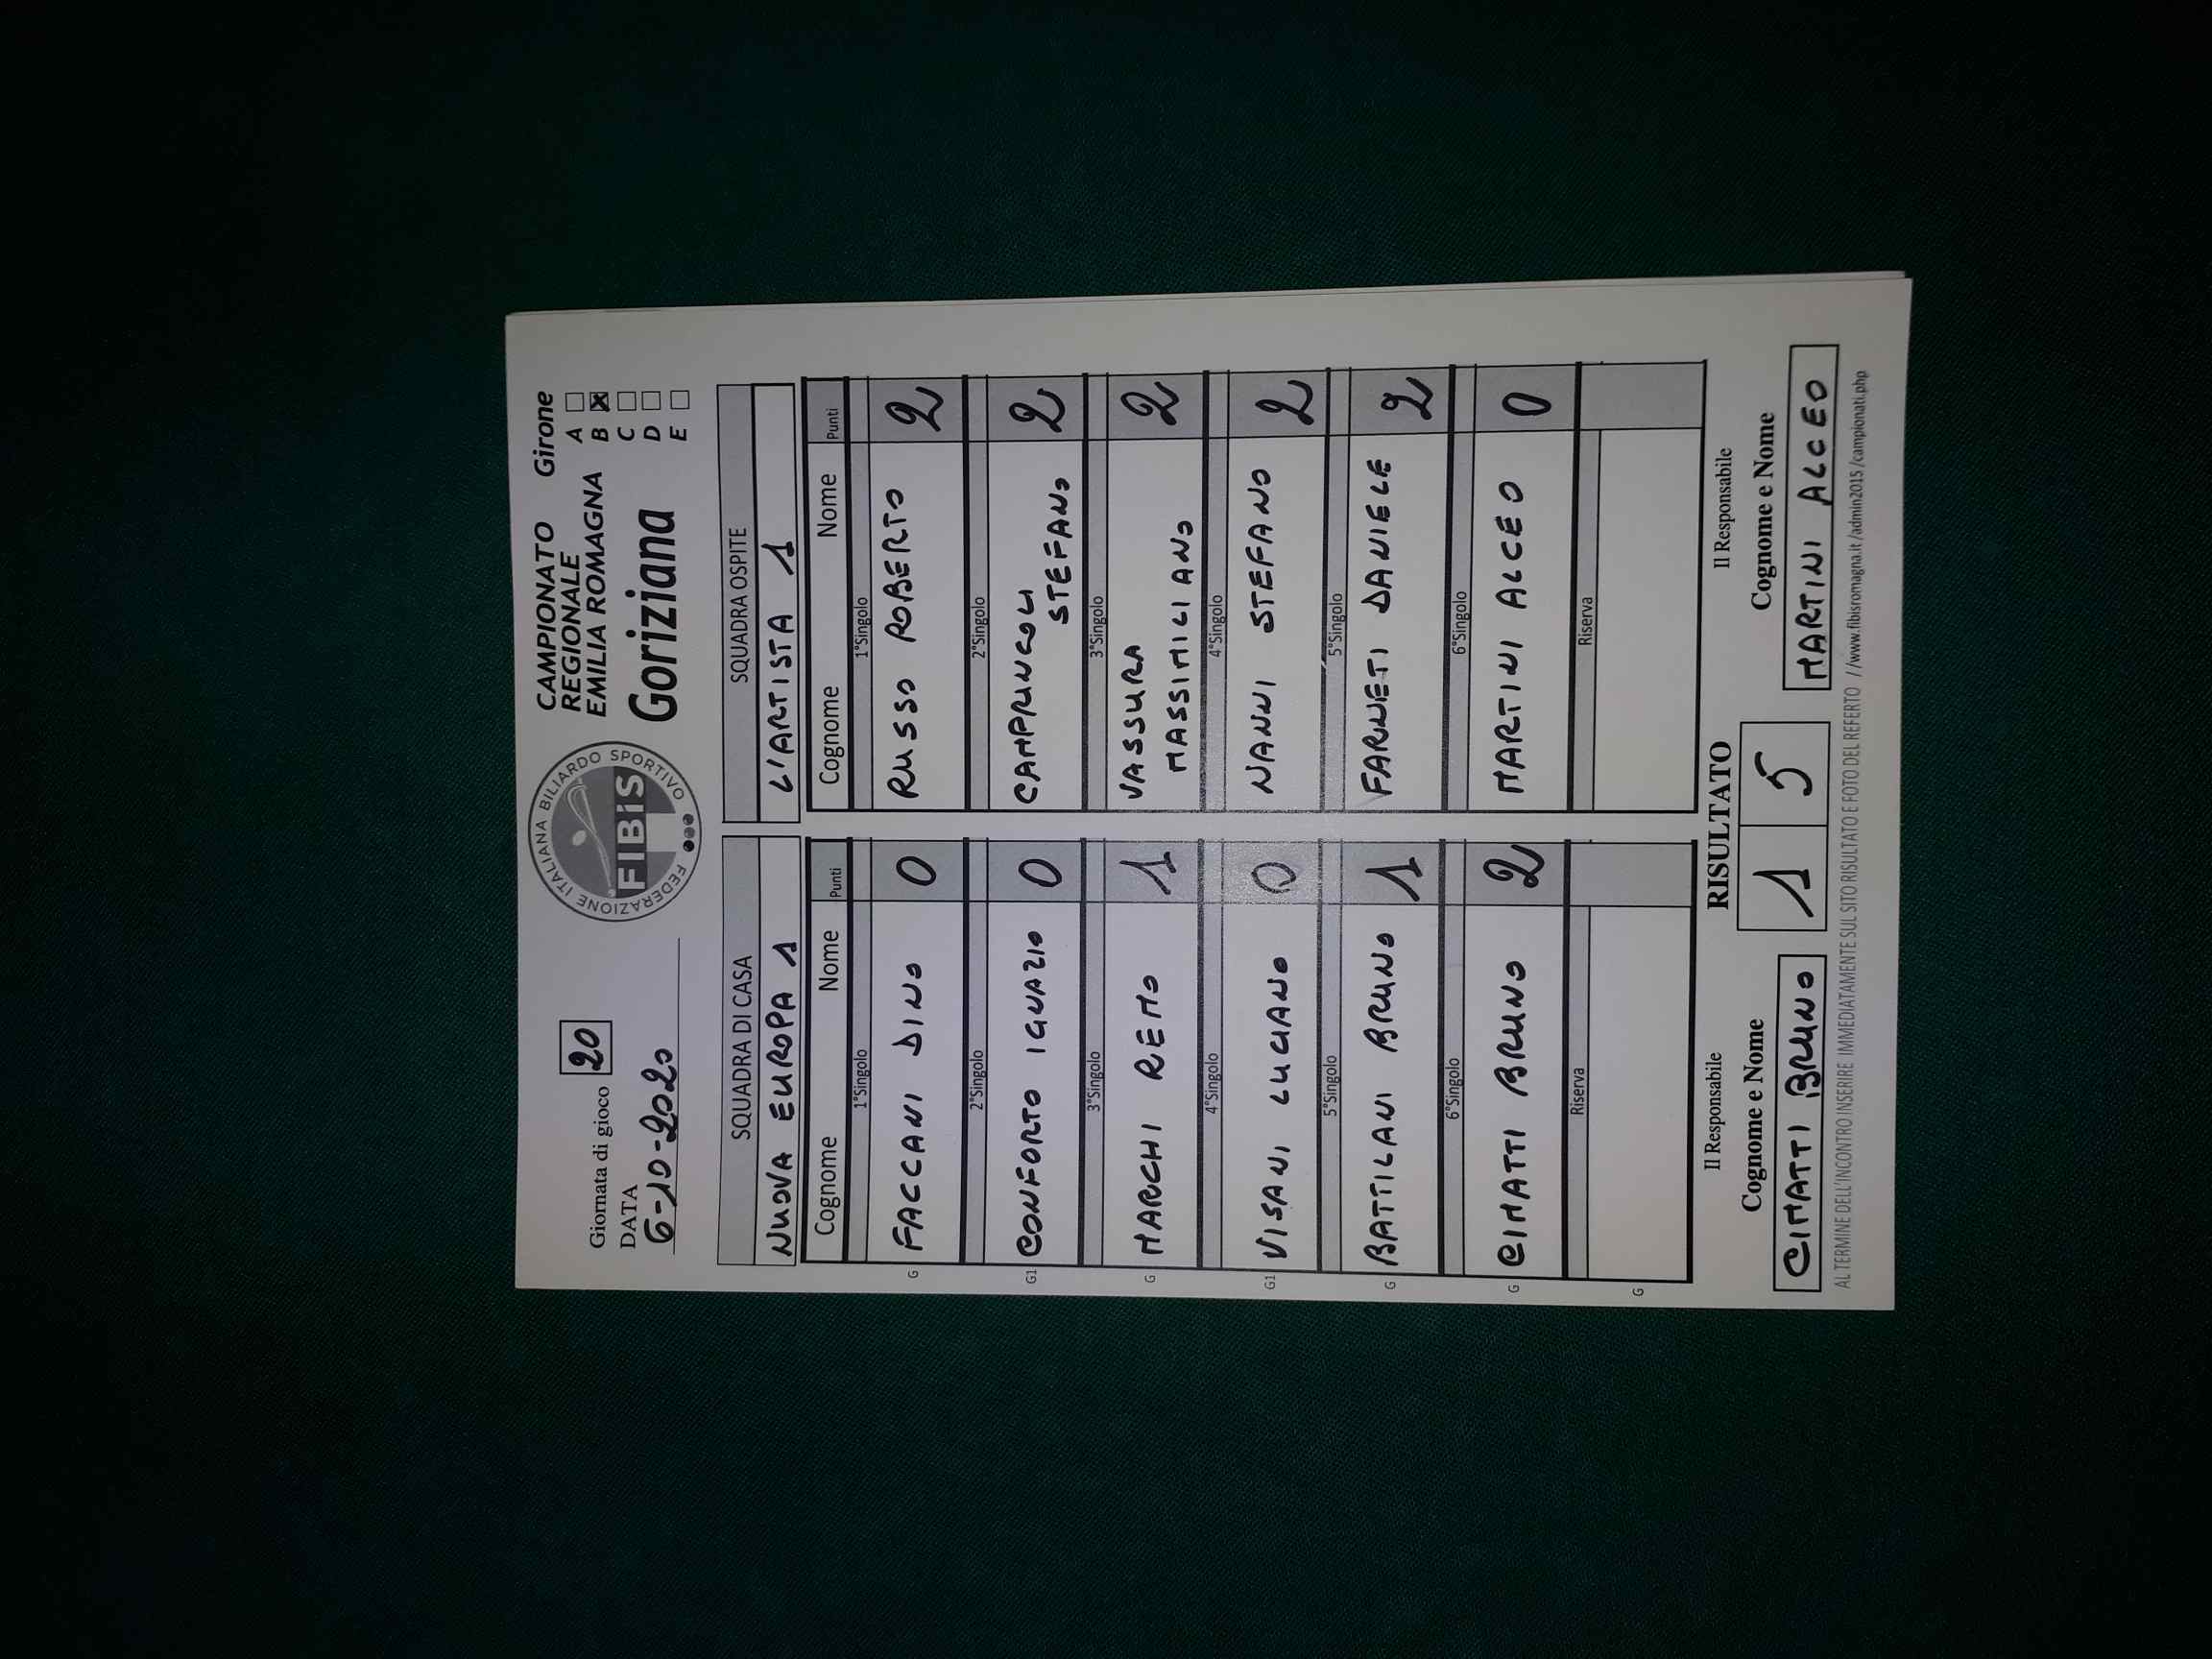 Giornata di gioco 20
DATA
6-10-2020
FEDERAZIONE ITALIANA BILIARDO SPORTIVO
FIBiS
CAMPIONATO
REGIONALE
EMILIA ROMAGNA
Goriziana
Girone
A
B X
C
D
E
SQUADRA DI CASA
NUOVA EUROPA 1
Cognome Nome Punti
1°Singolo
G FACCANI DINO 0
2°Singolo
G1 CONFORTO IGNAZIO 0
3°Singolo
G MARCHI REMO 1
4°Singolo
G1 VISANI LUCIANO 0
5°Singolo
G BATTILANI BRUNO 1
6°Singolo
G CIMATTI BRUNO 2
Riserva
G
SQUADRA OSPITE
L'ARTISTA 1
Cognome Nome Punti
1°Singolo
RUSSO ROBERTO 2
2°Singolo
CAMPRINCOLI
STEFANO 2
3°Singolo
VASSURA
MASSIMILIANO 2
4°Singolo
NANNI STEFANO 2
5°Singolo
FARNETI DANIELE 2
6°Singolo
MARTINI ALCEO 0
Riserva
Il Responsabile
Cognome e Nome
CIMATTI BRUNO
RISULTATO
1 5
Il Responsabile
Cognome e Nome
MARTINI ALCEO
AL TERMINE DELL'INCONTRO INSERIRE IMMEDIATAMENTE SUL SITO RISULTATO E FOTO DEL REFERTO /www.fibisromagna.it/admin2015/campionati.php